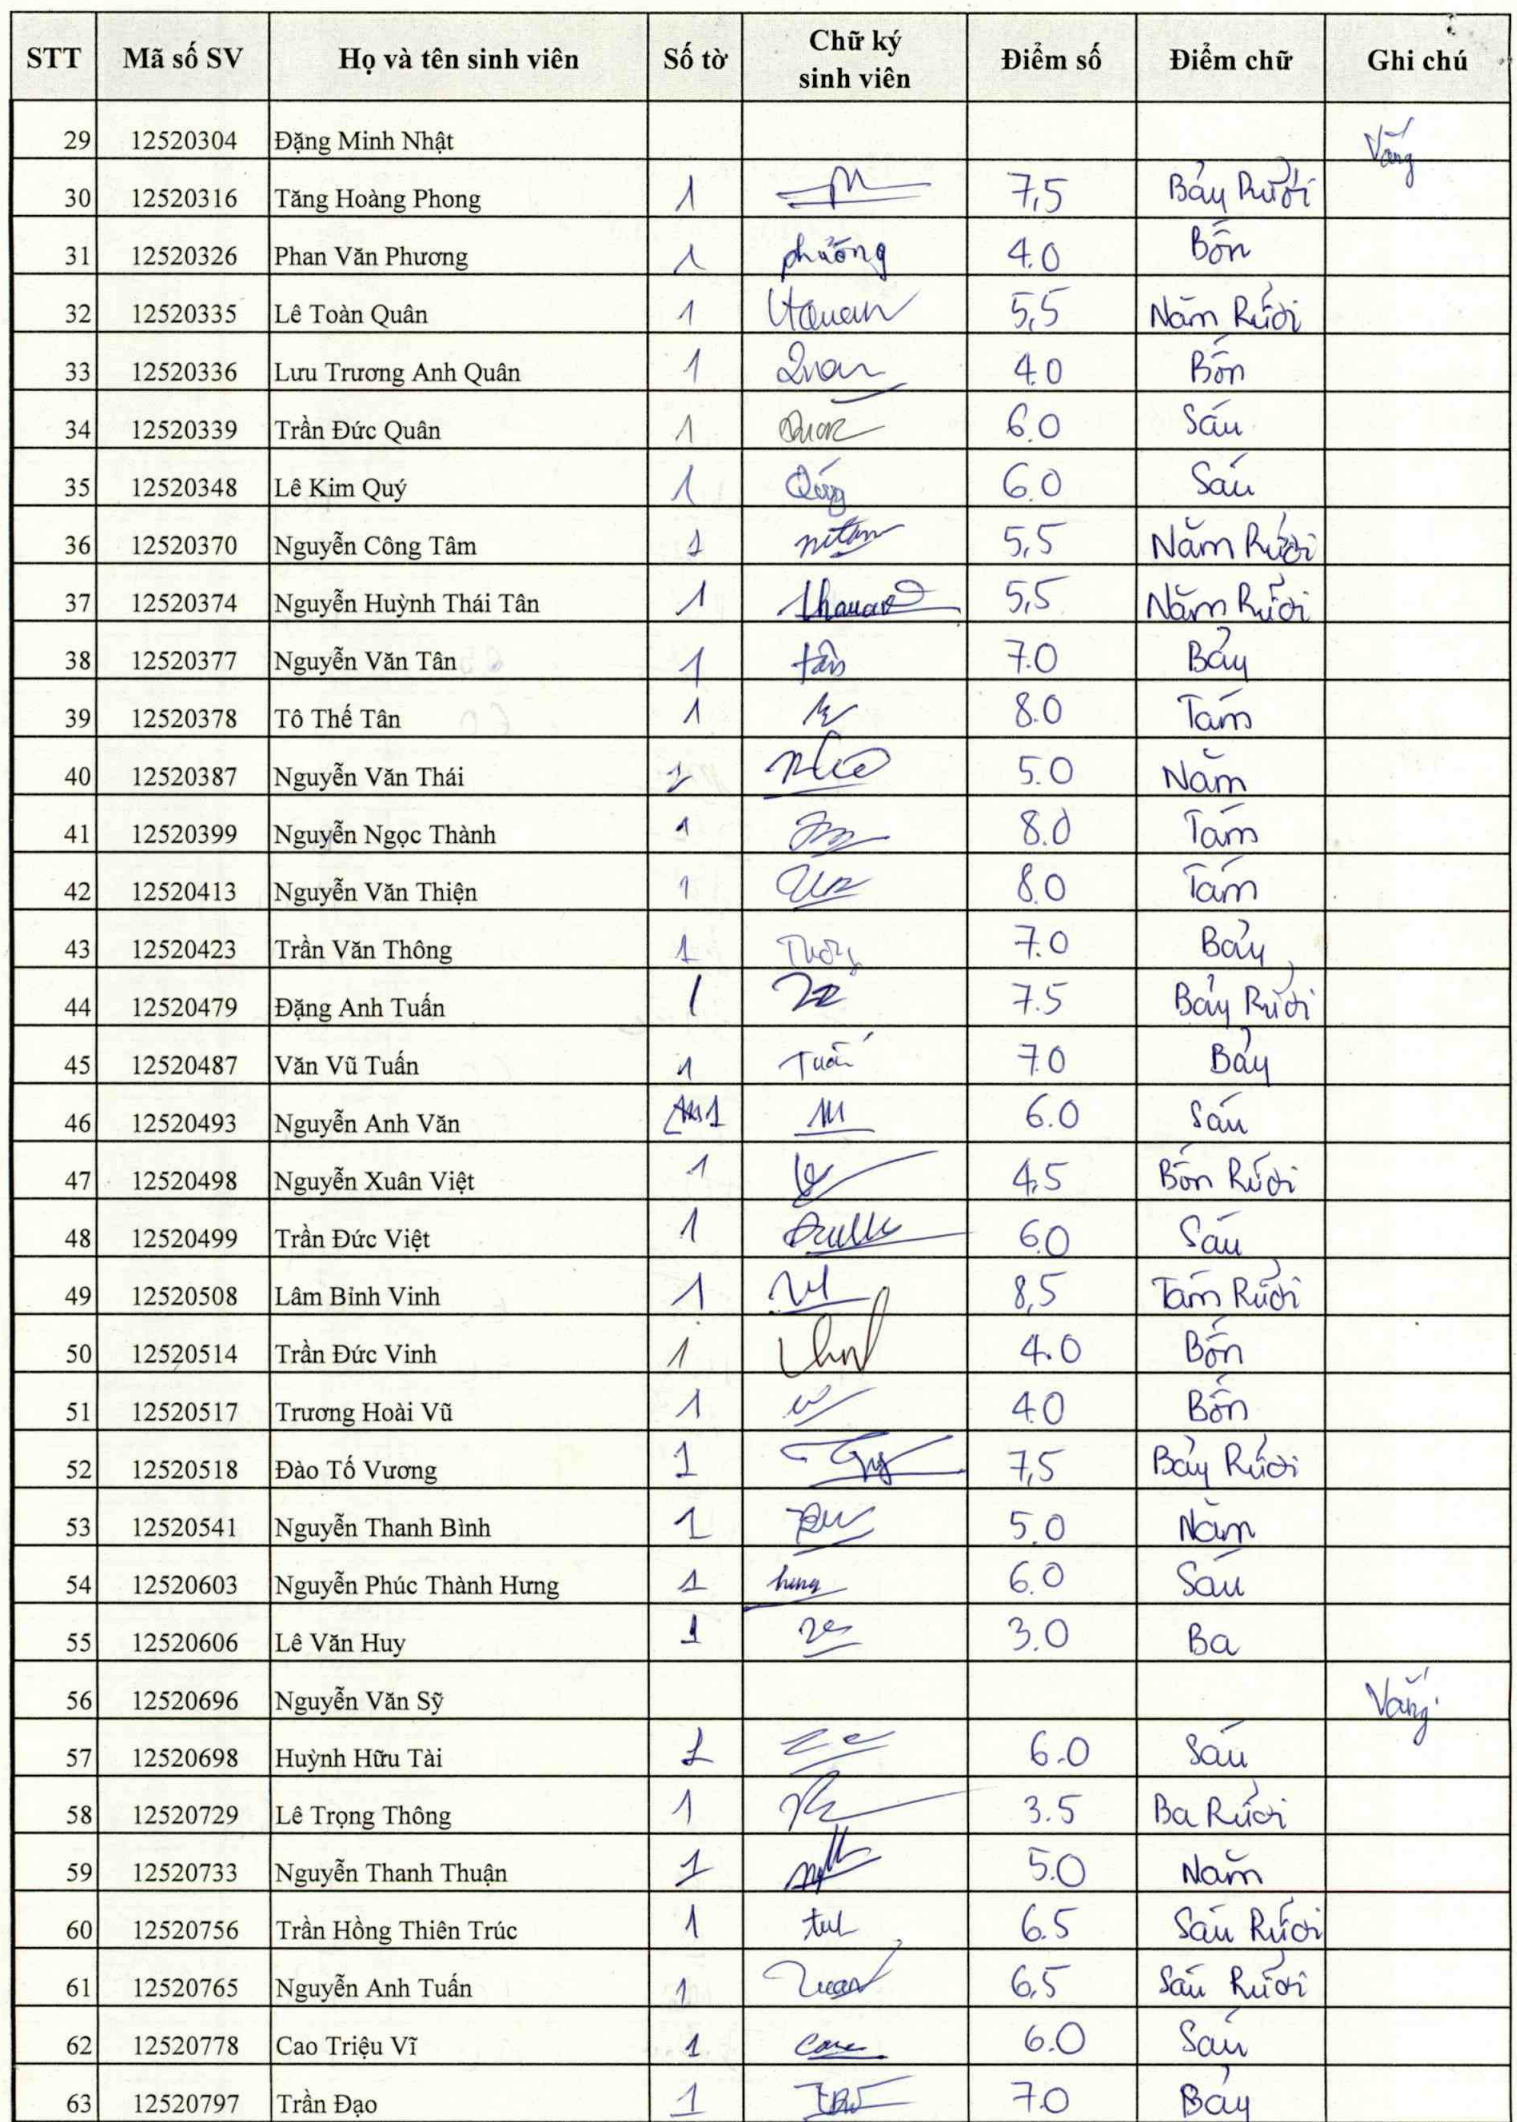 STT Mã số SV Họ và tên sinh viên Số tờ Chữ ký sinh viên Điểm số Điểm chữ Ghi chú
29 12520304 Đặng Minh Nhật Vắng
30 12520316 Tăng Hoàng Phong 1 7,5 Bảy Rưỡi
31 12520326 Phan Văn Phương 1 phương 4.0 Bốn
32 12520335 Lê Toàn Quân 1 5,5 Năm Rưỡi
33 12520336 Lưu Trương Anh Quân 1 Quan 4.0 Bốn
34 12520339 Trần Đức Quân 1 6.0 Sáu
35 12520348 Lê Kim Quý 1 6.0 Sáu
36 12520370 Nguyễn Công Tâm 1 5,5 Năm Rưỡi
37 12520374 Nguyễn Huỳnh Thái Tân 1 5,5 Năm Rưỡi
38 12520377 Nguyễn Văn Tân 1 tân 7.0 Bảy
39 12520378 Tô Thế Tân 1 8.0 Tám
40 12520387 Nguyễn Văn Thái 1 5.0 Năm
41 12520399 Nguyễn Ngọc Thành 1 8.0 Tám
42 12520413 Nguyễn Văn Thiện 1 8.0 Tám
43 12520423 Trần Văn Thông 1 Thông 7.0 Bảy
44 12520479 Đặng Anh Tuấn 1 7.5 Bảy Rưỡi
45 12520487 Văn Vũ Tuấn 1 Tuấn 7.0 Bảy
46 12520493 Nguyễn Anh Văn 1 6.0 Sáu
47 12520498 Nguyễn Xuân Việt 1 4,5 Bốn Rưỡi
48 12520499 Trần Đức Việt 1 6.0 Sáu
49 12520508 Lâm Bỉnh Vinh 1 8,5 Tám Rưỡi
50 12520514 Trần Đức Vinh 1 4.0 Bốn
51 12520517 Trương Hoài Vũ 1 4.0 Bốn
52 12520518 Đào Tố Vương 1 7,5 Bảy Rưỡi
53 12520541 Nguyễn Thanh Bình 1 5.0 Năm
54 12520603 Nguyễn Phúc Thành Hưng 1 hưng 6.0 Sáu
55 12520606 Lê Văn Huy 1 3.0 Ba
56 12520696 Nguyễn Văn Sỹ Vắng
57 12520698 Huỳnh Hữu Tài 1 6.0 Sáu
58 12520729 Lê Trọng Thông 1 3.5 Ba Rưỡi
59 12520733 Nguyễn Thanh Thuận 1 5.0 Năm
60 12520756 Trần Hồng Thiên Trúc 1 6.5 Sáu Rưỡi
61 12520765 Nguyễn Anh Tuấn 1 6,5 Sáu Rưỡi
62 12520778 Cao Triệu Vĩ 1 6.0 Sáu
63 12520797 Trần Đạo 1 7.0 Bảy